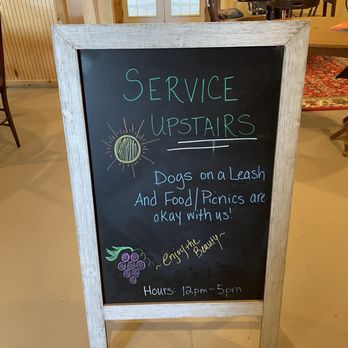 SERVICE
UPSTAIRS
Dogs on a Leash
And Food/Picnics are
okay with us!
~Enjoy the
Beauty~
Hours: 12pm-5pm